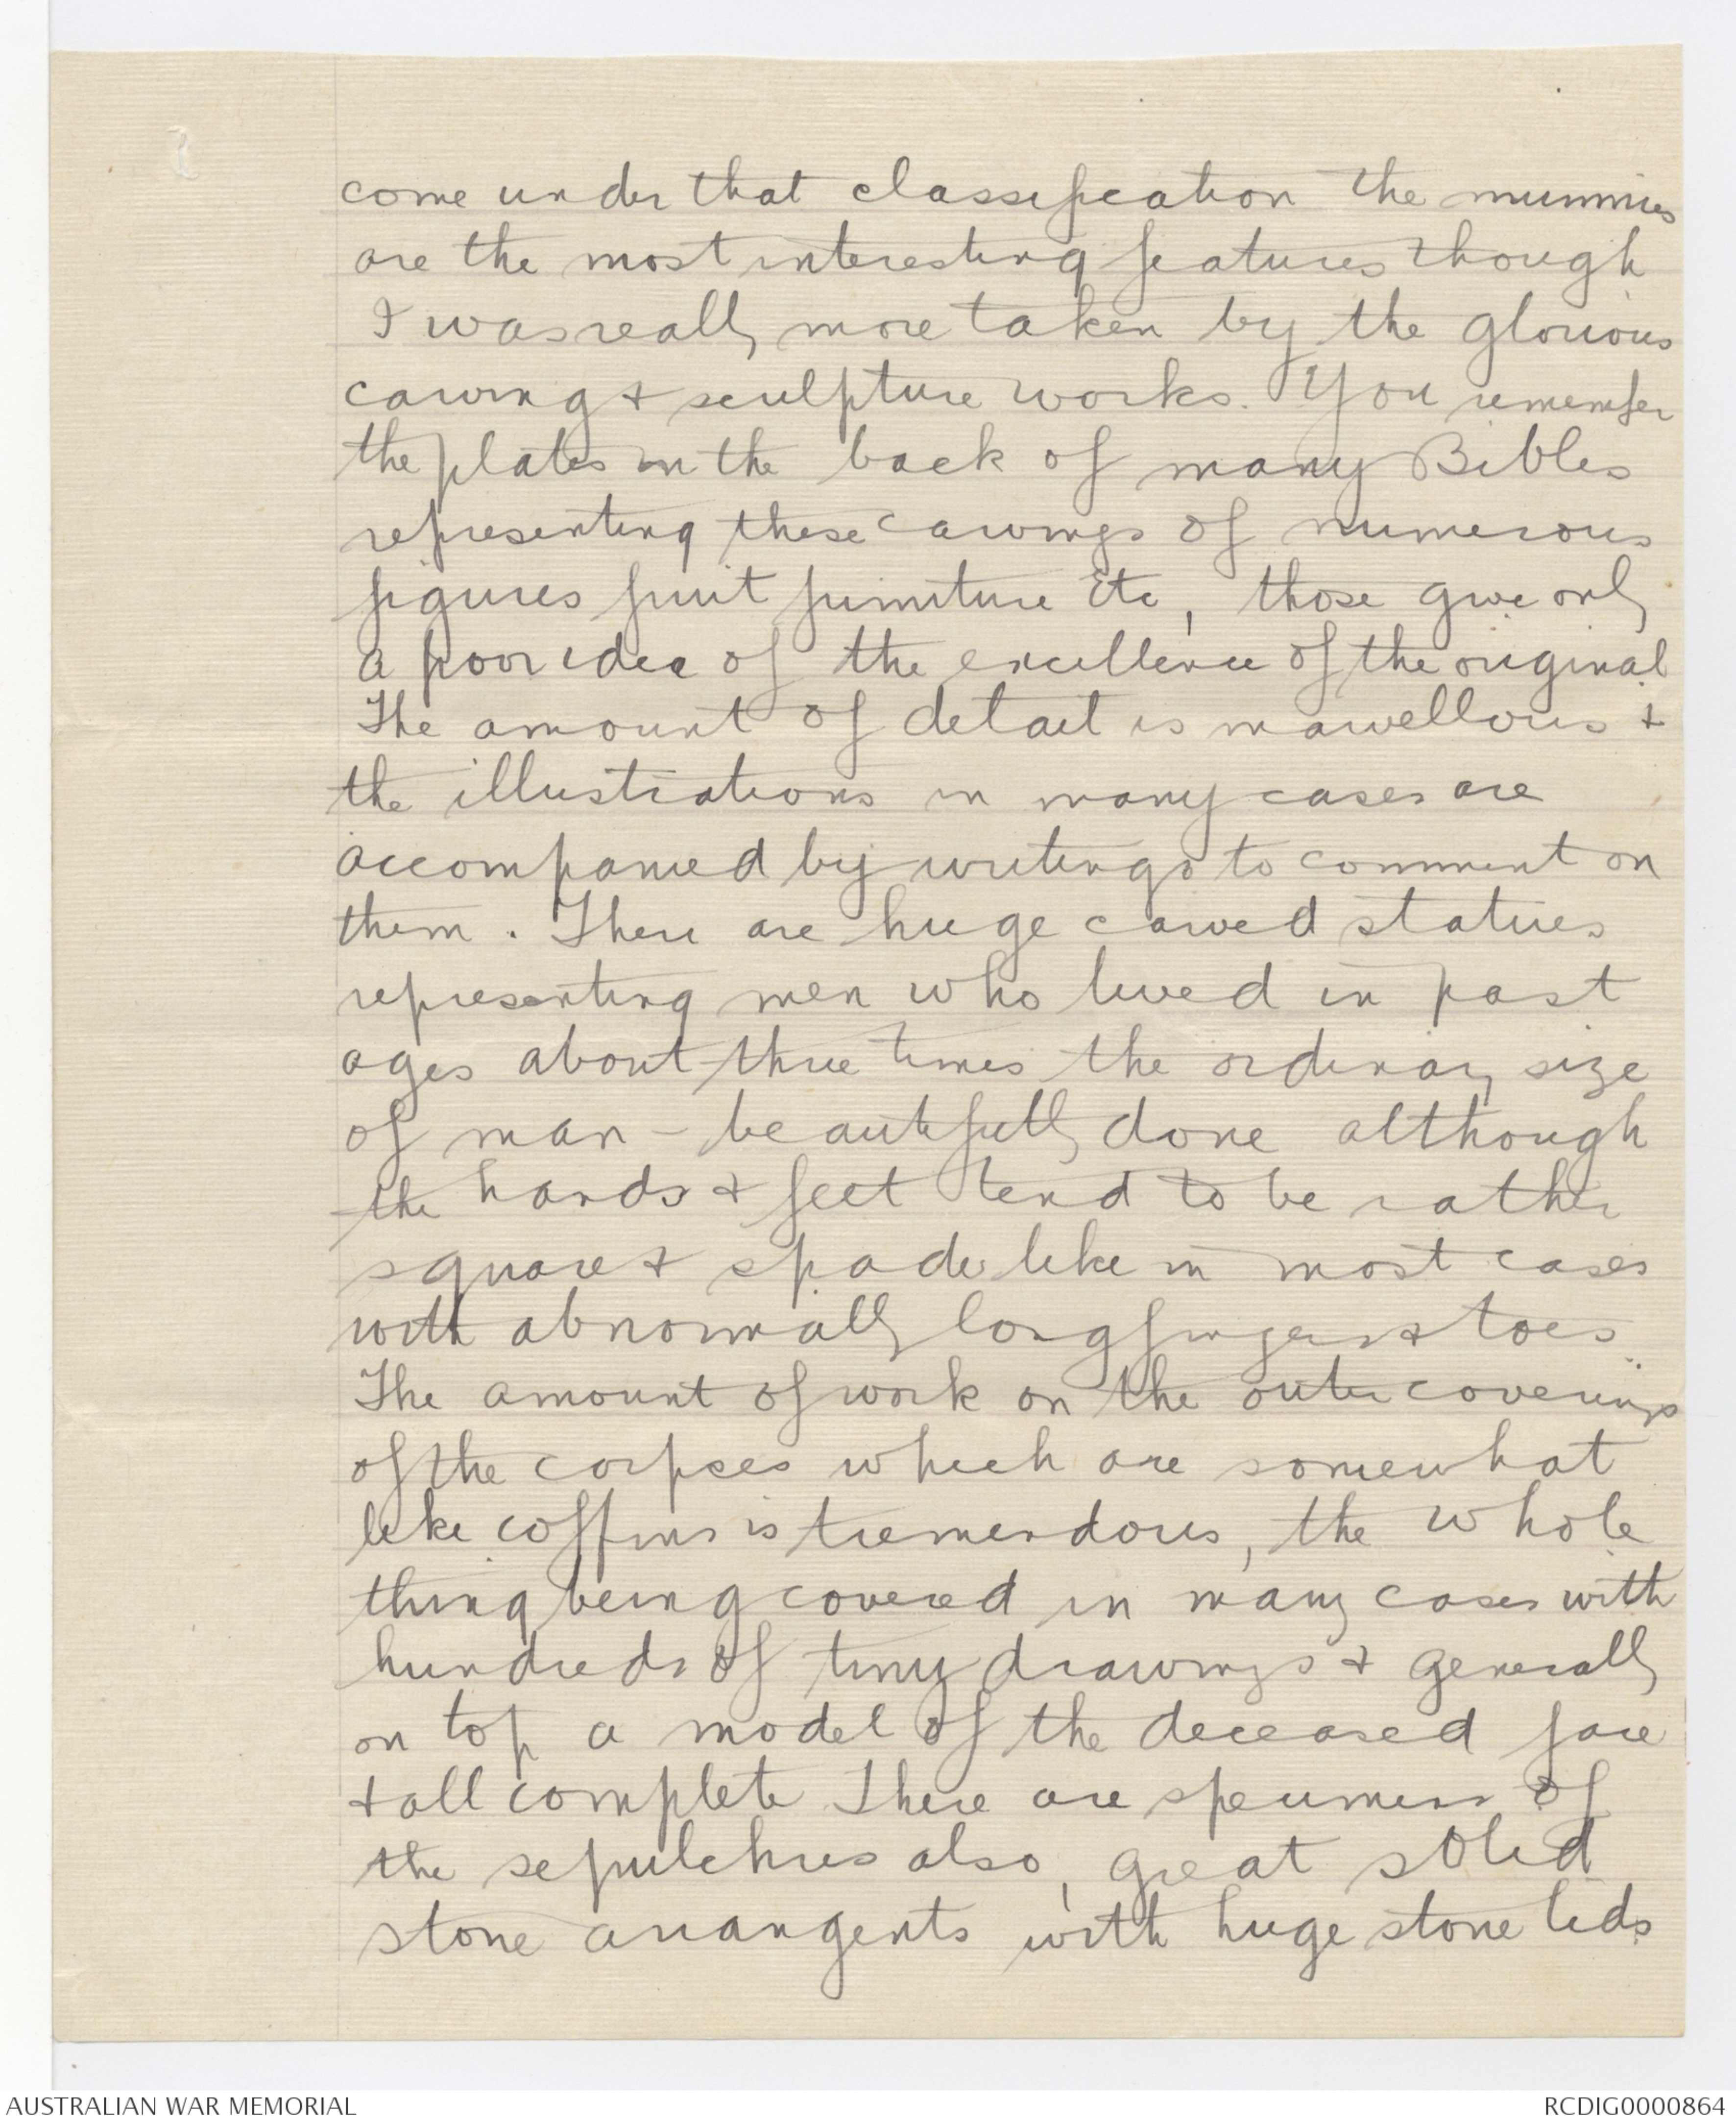 come under that classification the mummies
are the most interesting features though
I was really more taken by the glorious
carving & sculpture works. You remember
the plates in the back of many Bibles
representing these carvings of numerous
figures fruit furniture etc, those give only
a poor idea of the excellence of the original
The amount of detail is marvellous &
the illustrations in many cases are
accompanied by writings to comment on
them. There are huge carved statues
representing men who lived in past
ages about three times the ordinary size
of man - beautifully done although
the hands & feet tend to be rather
square & spade like in most cases
with abnormally long fingers & toes.
The amount of work on the outer coverings
of the corpses which are somewhat
like coffins is tremendous, the whole
thing being covered in many cases with
hundreds of tiny drawings & generally
on top a model of the deceased face
& all complete There are specimens of
the sepulchres also, great solid
stone arrangents with huge stone lids
AUSTRALIAN WAR MEMORIAL
RCDIG0000864